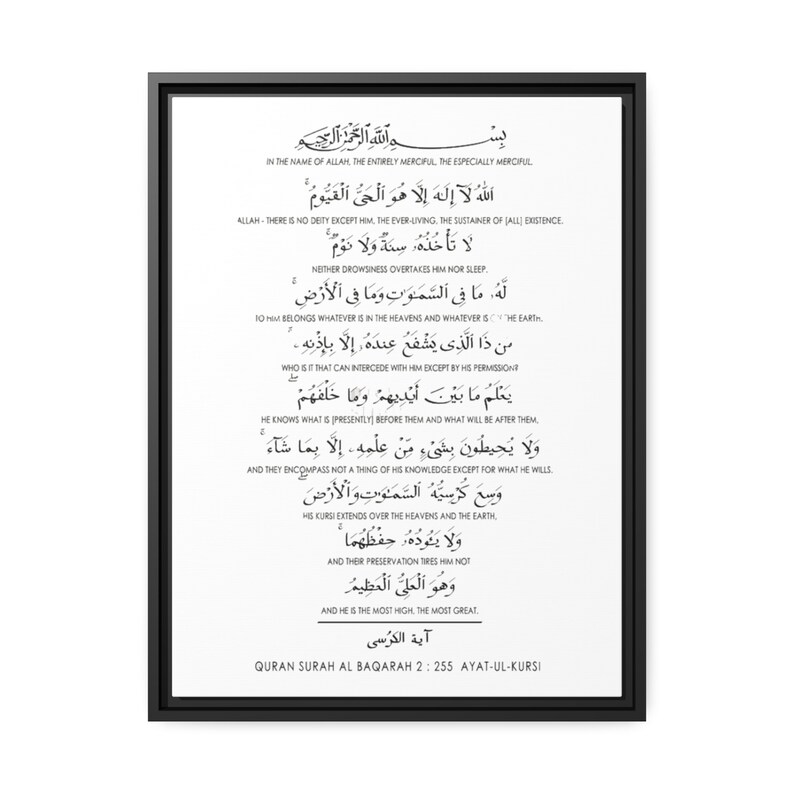 بِسْمِ ٱللَّهِ ٱلرَّحْمَٰنِ ٱلرَّحِيمِ
IN THE NAME OF ALLAH, THE ENTIRELY MERCIFUL, THE ESPECIALLY MERCIFUL.
ٱللَّهُ لَآ إِلَٰهَ إِلَّا هُوَ ٱلْحَىُّ ٱلْقَيُّومُ ۚ
ALLAH - THERE IS NO DEITY EXCEPT HIM, THE EVER-LIVING, THE SUSTAINER OF [ALL] EXISTENCE.
لَا تَأْخُذُهُۥ سِنَةٌ وَلَا نَوْمٌ ۚ
NEITHER DROWSINESS OVERTAKES HIM NOR SLEEP.
لَّهُۥ مَا فِى ٱلسَّمَٰوَٰتِ وَمَا فِى ٱلْأَرْضِ ۗ
TO HIM BELONGS WHATEVER IS IN THE HEAVENS AND WHATEVER IS THE EARTH.
من ذَا ٱلَّذِى يَشْفَعُ عِندَهُۥٓ إِلَّا بِإِذْنِهِۦ ۚ
WHO IS IT THAT CAN INTERCEDE WITH HIM EXCEPT BY HIS PERMISSION?
يَعْلَمُ مَا بَيْنَ أَيْدِيهِمْ وَمَا خَلْفَهُمْ ۖ
HE KNOWS WHAT IS [PRESENTLY] BEFORE THEM AND WHAT WILL BE AFTER THEM,
وَلَا يُحِيطُونَ بِشَىْءٍ مِّنْ عِلْمِهِۦٓ إِلَّا بِمَا شَآءَ ۚ
AND THEY ENCOMPASS NOT A THING OF HIS KNOWLEDGE EXCEPT FOR WHAT HE WILLS.
وَسِعَ كُرْسِيُّهُ ٱلسَّمَٰوَٰتِ وَٱلْأَرْضَ ۖ
HIS KURSI EXTENDS OVER THE HEAVENS AND THE EARTH,
وَلَا يَـُٔودُهُۥ حِفْظُهُمَا ۚ
AND THEIR PRESERVATION TIRES HIM NOT
وَهُوَ ٱلْعَلِىُّ ٱلْعَظِيمُ
AND HE IS THE MOST HIGH, THE MOST GREAT.
آية الكرسى
QURAN SURAH AL BAQARAH 2 : 255 AYAT-UL-KURSI